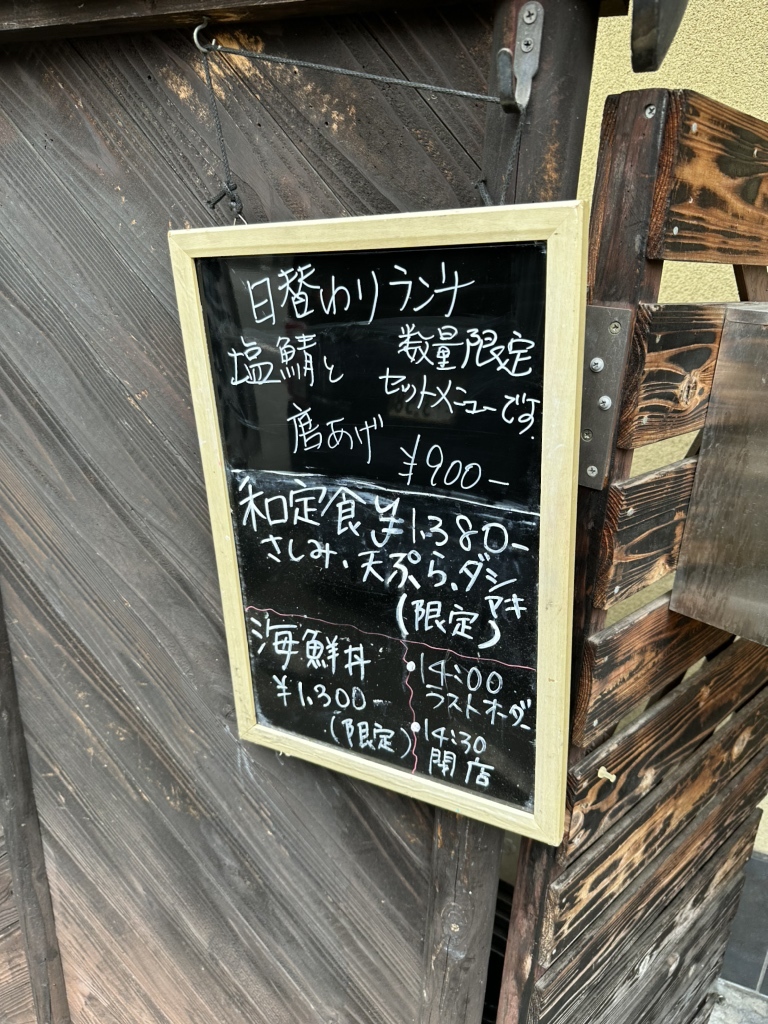 日替わりランチ
塩鯖と
唐あげ
数量限定
セットメニューです。
¥900-
和定食 ¥1,380-
さしみ、天ぷら、ダシマキ
(限定)
海鮮丼
¥1,300-
(限定)
・14:00
ラストオーダー
・14:30
閉店